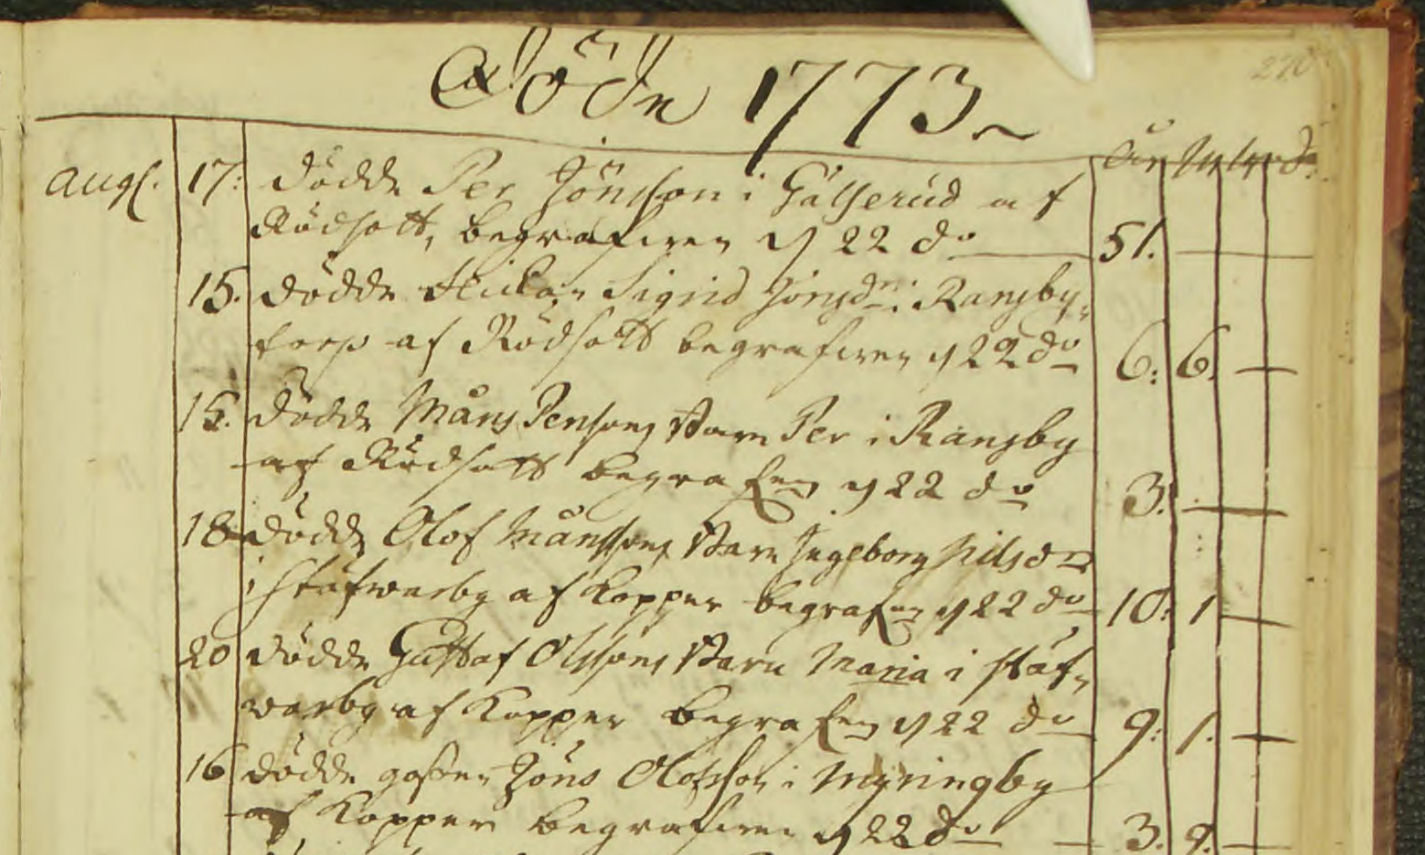 Död 1773
270
år m w d.
Aug. 17: dödde Per Jönsson i Gälserud af
Rödsott, begrafwen d 22 do 51.
15. dödde Sigrid Jönsdr i Ransby-
torp af Rödsott begrafwen d 22 do 6: 6. —
15. dödde Måns Persons barn Per i Ransby
af Rödsott begrafen d 22 do 3. —
18 dödde Olof Månssons barn Ingeborg
i Stafwerby af Kopper begrafen d 22 do 10: 1 —
20 dödde Gustaf Olssons barn Maria i Staf-
warby af Kopper begrafen d 22 do 9: 1. —
16 dödde gossen Jöns Olofsson i Myringby
af Kopper begrafwen d 22 do — 3. 9. —